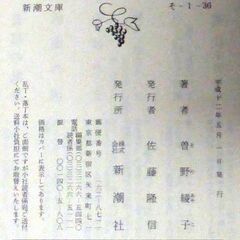 新潮文庫
そ-1-36
平成十二年五月一日発行
著者 曽野綾子
発行者 佐藤隆信
発行所 株式会社 新潮社
郵便番号 一六二―八七一一
東京都新宿区矢来町七一
電話 編集部
読者係
振替 〇〇一四〇―五―八〇八
価格はカバーに表示してあります。
乱丁・落丁本は、ご面倒ですが小社読者係宛ご送付
ください。送料小社負担にてお取替えいたします。